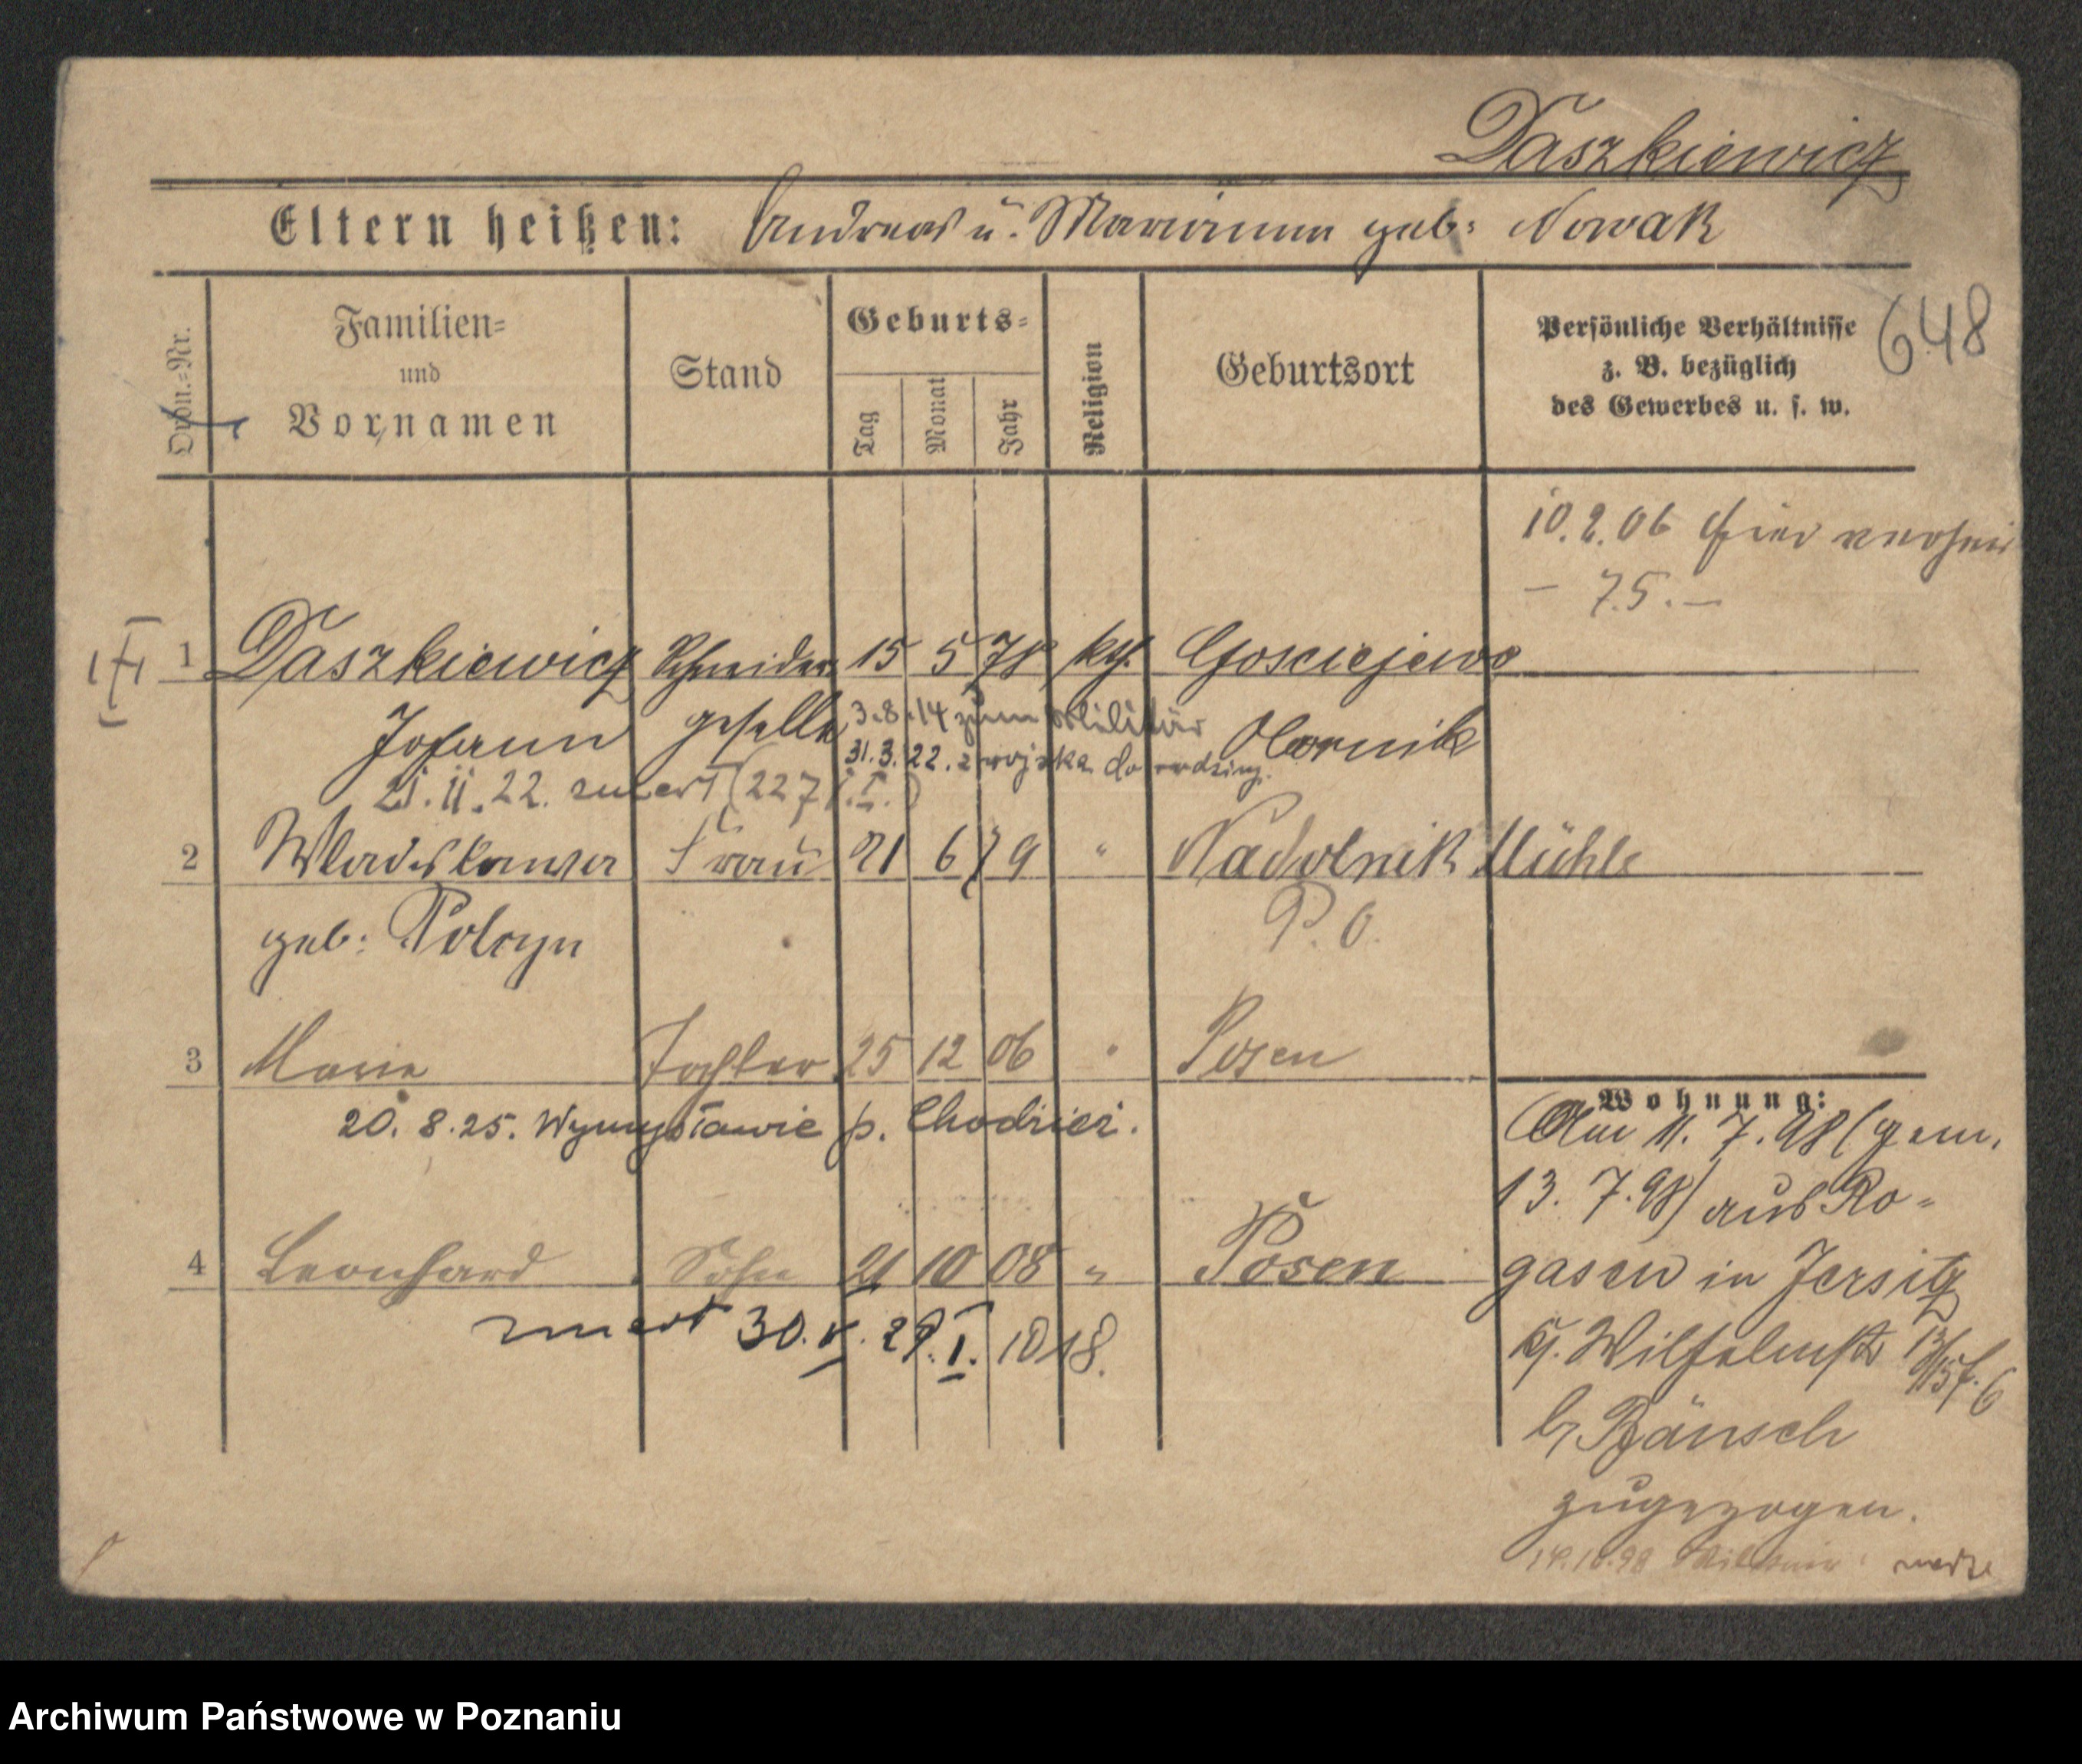 Daszkiewicz
Eltern heißen: Andreas u. Marianna geb: Nowak
Ordn.=Nr.
Familien=
und
Vornamen
Stand
Geburts=
Tag
Monat
Jahr
Religion
Geburtsort
Persönliche Verhältnisse
z. B. bezüglich
des Gewerbes u. s. w.
648
10.2.06 hier
- 75.-
1 Daszkiewicz Schneider 15 5 78 kth. Gosciejewo
Johann geselle 3.8.14 zum Militär Obornik
31.3.22. z wojska do rodziny.
21.11.22. zmarł (227 )
2 Wladislawa Frau 21 6 79 " Nadolnik Mühle
geb: Polcyn P. O.
3 Marie Tochter 25 12 06 " Posen
20. 8. 25. Wymysławie p. Chodzież.
4 Leonhard Sohn 21 10 08 " Posen
zmarł 30. V. 29. I. 1018.
Wohnung:
Am 11. 7. 98 (gem.
13. 7. 98) aus Ro-
gasen in Jersitz
Wilhelmstr
b/ Bänsch
zugezogen.
14.10.98
Archiwum Państwowe w Poznaniu